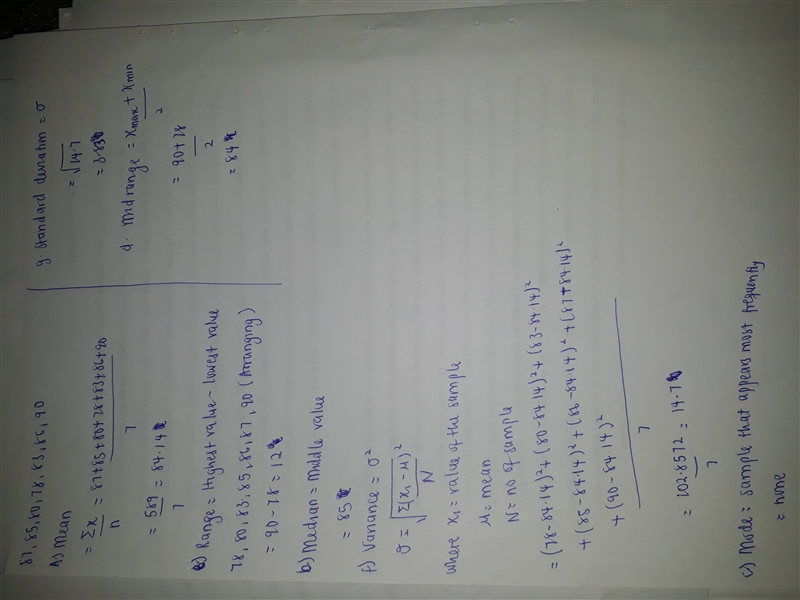 87, 85, 80, 78, 83, 86, 90
A) Mean
= Σx / n = 87+85+80+78+83+86+90 / 7
= 589 / 7 = 84.14
e) Range = Highest value - lowest value
78, 80, 83, 85, 86, 87, 90 (Arranging)
= 90 - 78 = 12
b) Median = Middle value
= 85
f) Variance = σ²
σ = √Σ(x₁ - μ)² / N
where x₁ = value of the sample
μ = mean
N = no of sample
= (78-84.14)² + (80-84.14)² + (83-84.14)²
+ (85-84.14)² + (86-84.14)² + (87-84.14)²
+ (90-84.14)²
7
= 102.8572 / 7 = 14.7
c) Mode = sample that appears most frequently
= none
g. Standard deviation = σ
= √14.7
= 3.83
d. Midrange = xmax + xmin / 2
= 90+78 / 2
= 84